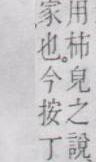 用柿皃之說
家也。今按丁